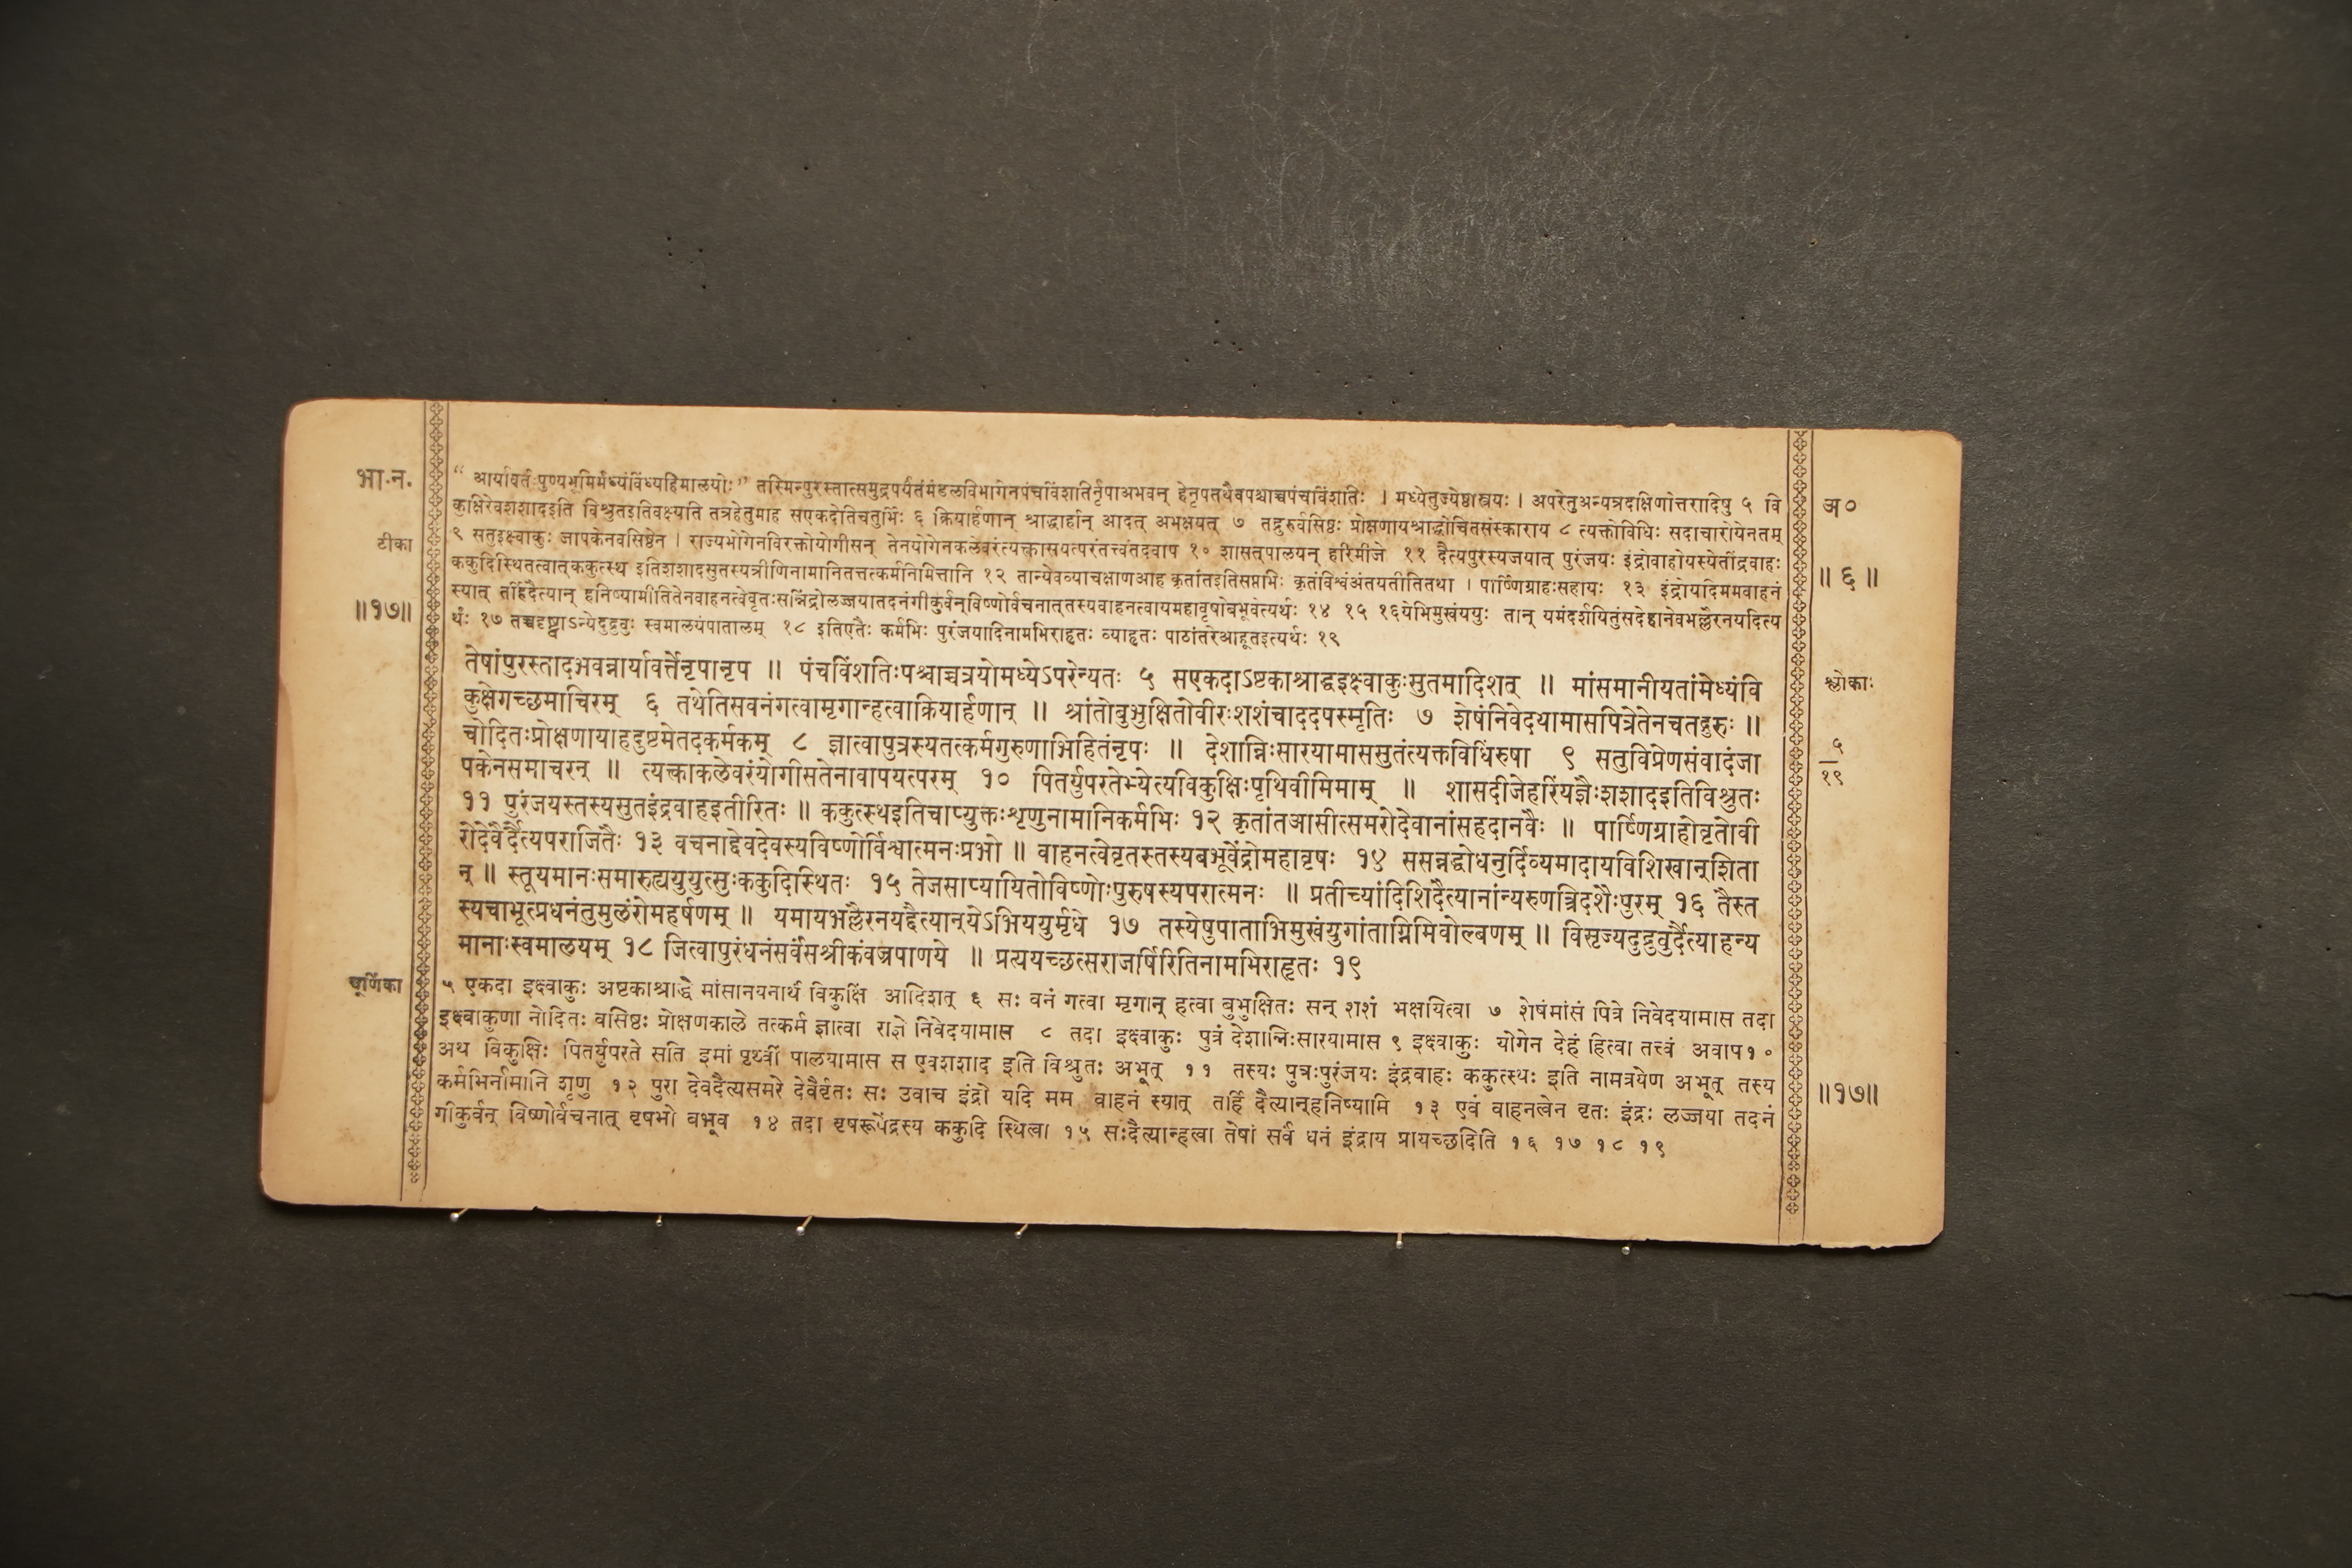 भा.न.
“ आर्यावर्तःपुण्यभूमिर्मध्यंविंध्यहिमालयोः” तस्मिन्पुरस्तात्समुद्रपर्यंतंमंडलविभागेनपंचविंशतिर्नृपाअभवन् हेनृपतथैवपश्चाच्चपंचविंशतिः । मध्येतुज्येष्ठास्त्रयः । अपरेतुअन्यत्रदक्षिणोत्तरादिषु ५ वि
अ०
कुक्षिरेवशशादइति विश्रुतइतिवक्ष्यति तत्रहेतुमाह सएकदेतिचतुर्भिः ६ क्रियार्हणान् श्राद्धार्हान् आदत् अभक्षयत् ७ तद्गुरुर्वसिष्ठः प्रोक्षणायश्राद्धोचितसंस्काराय ८ त्यक्तोविधिः सदाचारोयेनतम्
टीका
९ सतुइक्ष्वाकुः जापकेनवसिष्ठेन । राज्यभोगेनविरक्तोयोगीसन् तेनयोगेनकलेवरंत्यक्त्वासयत्परंतत्त्वंतदवाप १० शासत्पालयन् हरिमीजे ११ दैत्यपुरस्यजयात् पुरंजयः इंद्रोवाहोयस्येतींद्रवाहः
ककुदिस्थितत्वात्ककुत्स्थ इतिशशादसुतस्यत्रीणिनामानितत्तत्कर्मनिमित्तानि १२ तान्येवव्याचक्षाणआह कृतांतइतिसप्तभिः कृतांविश्वंअंतयतीतितथा । पार्ष्णिग्राहःसहायः १३ इंद्रोयदिममवाहनं
॥ ६ ॥
स्यात् तर्हिदैत्यान् हनिष्यामीतितेनवाहनत्वेवृतःसन्निंद्रोलज्जयातदनंगीकुर्वन्विष्णोर्वचनात्तस्यवाहनत्वायमहावृषोबभूवेत्यर्थः १४ १५ १६येभिमुखंययुः तान् यमंदर्शयितुंसदेहानेवभल्लैरनयदित्य
॥१७॥
र्थः १७ तच्चदृष्ट्वाऽन्येदुद्रुवुः स्वमालयंपातालम् १८ इतिएतैः कर्मभिः पुरंजयादिनामभिराहृतः व्याहृतः पाठांतरेआहूतइत्यर्थः १९
तेषांपुरस्तादभवन्नार्यावर्त्तेनृपानृप ॥ पंचविंशतिःपश्चाच्चत्रयोमध्येऽपरेन्यतः ५ सएकदाऽष्टकाश्राद्धइक्ष्वाकुःसुतमादिशत् ॥ मांसमानीयतांमेध्यंवि
श्लोकाः
कुक्षेगच्छमाचिरम् ६ तथेतिसवनंगत्वामृगान्हत्वाक्रियार्हणान् ॥ श्रांतोबुभुक्षितोवीरःशशंचाददपस्मृतिः ७ शेषंनिवेदयामासपित्रेतेनचतद्गुरुः ॥
चोदितःप्रोक्षणायाहदुष्टमेतदकर्मकम् ८ ज्ञात्वापुत्रस्यतत्कर्मगुरुणाभिहितंनृपः ॥ देशान्निःसारयामाससुतंत्यक्तविधिंरुषा ९ सतुविप्रेणसंवादंजा
५
१९
पकेनसमाचरन् ॥ त्यक्त्वाकलेवरंयोगीसतेनावापयत्परम् १० पितर्युपरतेभ्येत्यविकुक्षिःपृथिवीमिमाम् ॥ शासदीजेहरिंयज्ञैःशशादइतिविश्रुतः
११ पुरंजयस्तस्यसुतइंद्रवाहइतीरितः ॥ ककुत्स्थइतिचाप्युक्तःशृणुनामानिकर्मभिः १२ कृतांतआसीत्समरोदेवानांसहदानवैः ॥ पार्ष्णिग्राहोवृतोवी
रोदेवैर्दैत्यपराजितैः १३ वचनाद्देवदेवस्यविष्णोर्विश्वात्मनःप्रभो ॥ वाहनत्वेवृतस्तस्यबभूवेंद्रोमहावृषः १४ ससन्नद्धोधनुर्दिव्यमादायविशिखान्शिता
न् ॥ स्तूयमानःसमारुह्ययुयुत्सुःककुदिस्थितः १५ तेजसाप्यायितोविष्णोःपुरुषस्यपरात्मनः ॥ प्रतीच्यांदिशिदैत्यानांन्यरुणत्त्रिदशैःपुरम् १६ तैस्त
स्यचाभूत्प्रधनंतुमुलंरोमहर्षणम् ॥ यमायभल्लैरनयद्दैत्यान्येऽभिययुर्मृधे १७ तस्येषुपाताभिमुखंयुगांताग्निमिवोल्बणम् ॥ विसृज्यदुद्रुवुर्दैत्याहन्य
मानाःस्वमालयम् १८ जित्वापुरंधनंसर्वंसश्रीकंवज्रपाणये ॥ प्रत्ययच्छत्सराजर्षिरितिनामभिराहृतः १९
चूर्णिका
५ एकदा इक्ष्वाकुः अष्टकाश्राद्धे मांसानयनार्थं विकुक्षिं आदिशत् ६ सः वनं गत्वा मृगान् हत्वा बुभुक्षितः सन् शशं भक्षयित्वा ७ शेषंमांसं पित्रे निवेदयामास तदा
इक्ष्वाकुणा नोदितः वसिष्ठः प्रोक्षणकाले तत्कर्म ज्ञात्वा राज्ञे निवेदयामास ८ तदा इक्ष्वाकुः पुत्रं देशान्निःसारयामास ९ इक्ष्वाकुः योगेन देहं हित्वा तत्त्वं अवाप१०
अथ विकुक्षिः पितर्युपरते सति इमां पृथ्वीं पालयामास स एवशशाद इति विश्रुतः अभूत् ११ तस्यः पुत्रःपुरंजयः इंद्रवाहः ककुत्स्थः इति नामत्रयेण अभूत् तस्य
कर्मभिर्नामानि शृणु १२ पुरा देवदैत्यसमरे देवैर्वृतः सः उवाच इंद्रो यदि मम वाहनं स्यात् तर्हि दैत्यान्हनिष्यामि १३ एवं वाहनत्वेन वृतः इंद्रः लज्जया तदनं
॥१७॥
गीकुर्वन् विष्णोर्वचनात् वृषभो बभूव १४ तदा वृषरूपेंद्रस्य ककुदि स्थित्वा १५ सःदैत्यान्हत्वा तेषां सर्वं धनं इंद्राय प्रायच्छदिति १६ १७ १८ १९